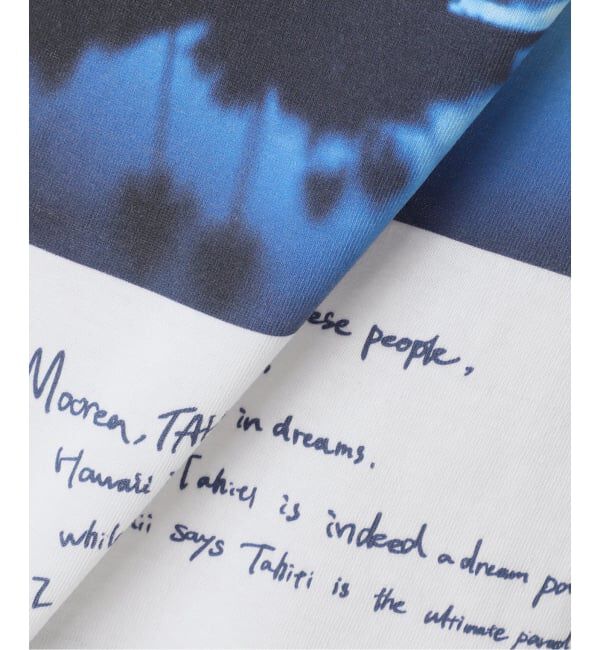 ese people,
Moorea, TAH in dreams.
Hawaii Tahiti is indeed a dream
while ii says Tahiti is the ultimate
Z